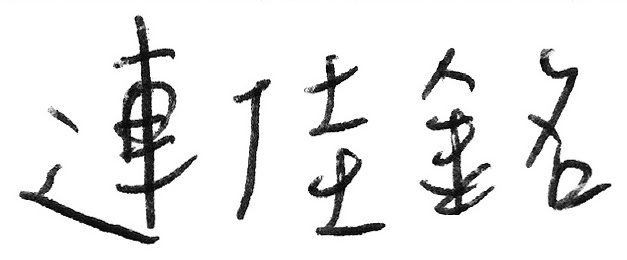 連佳銘